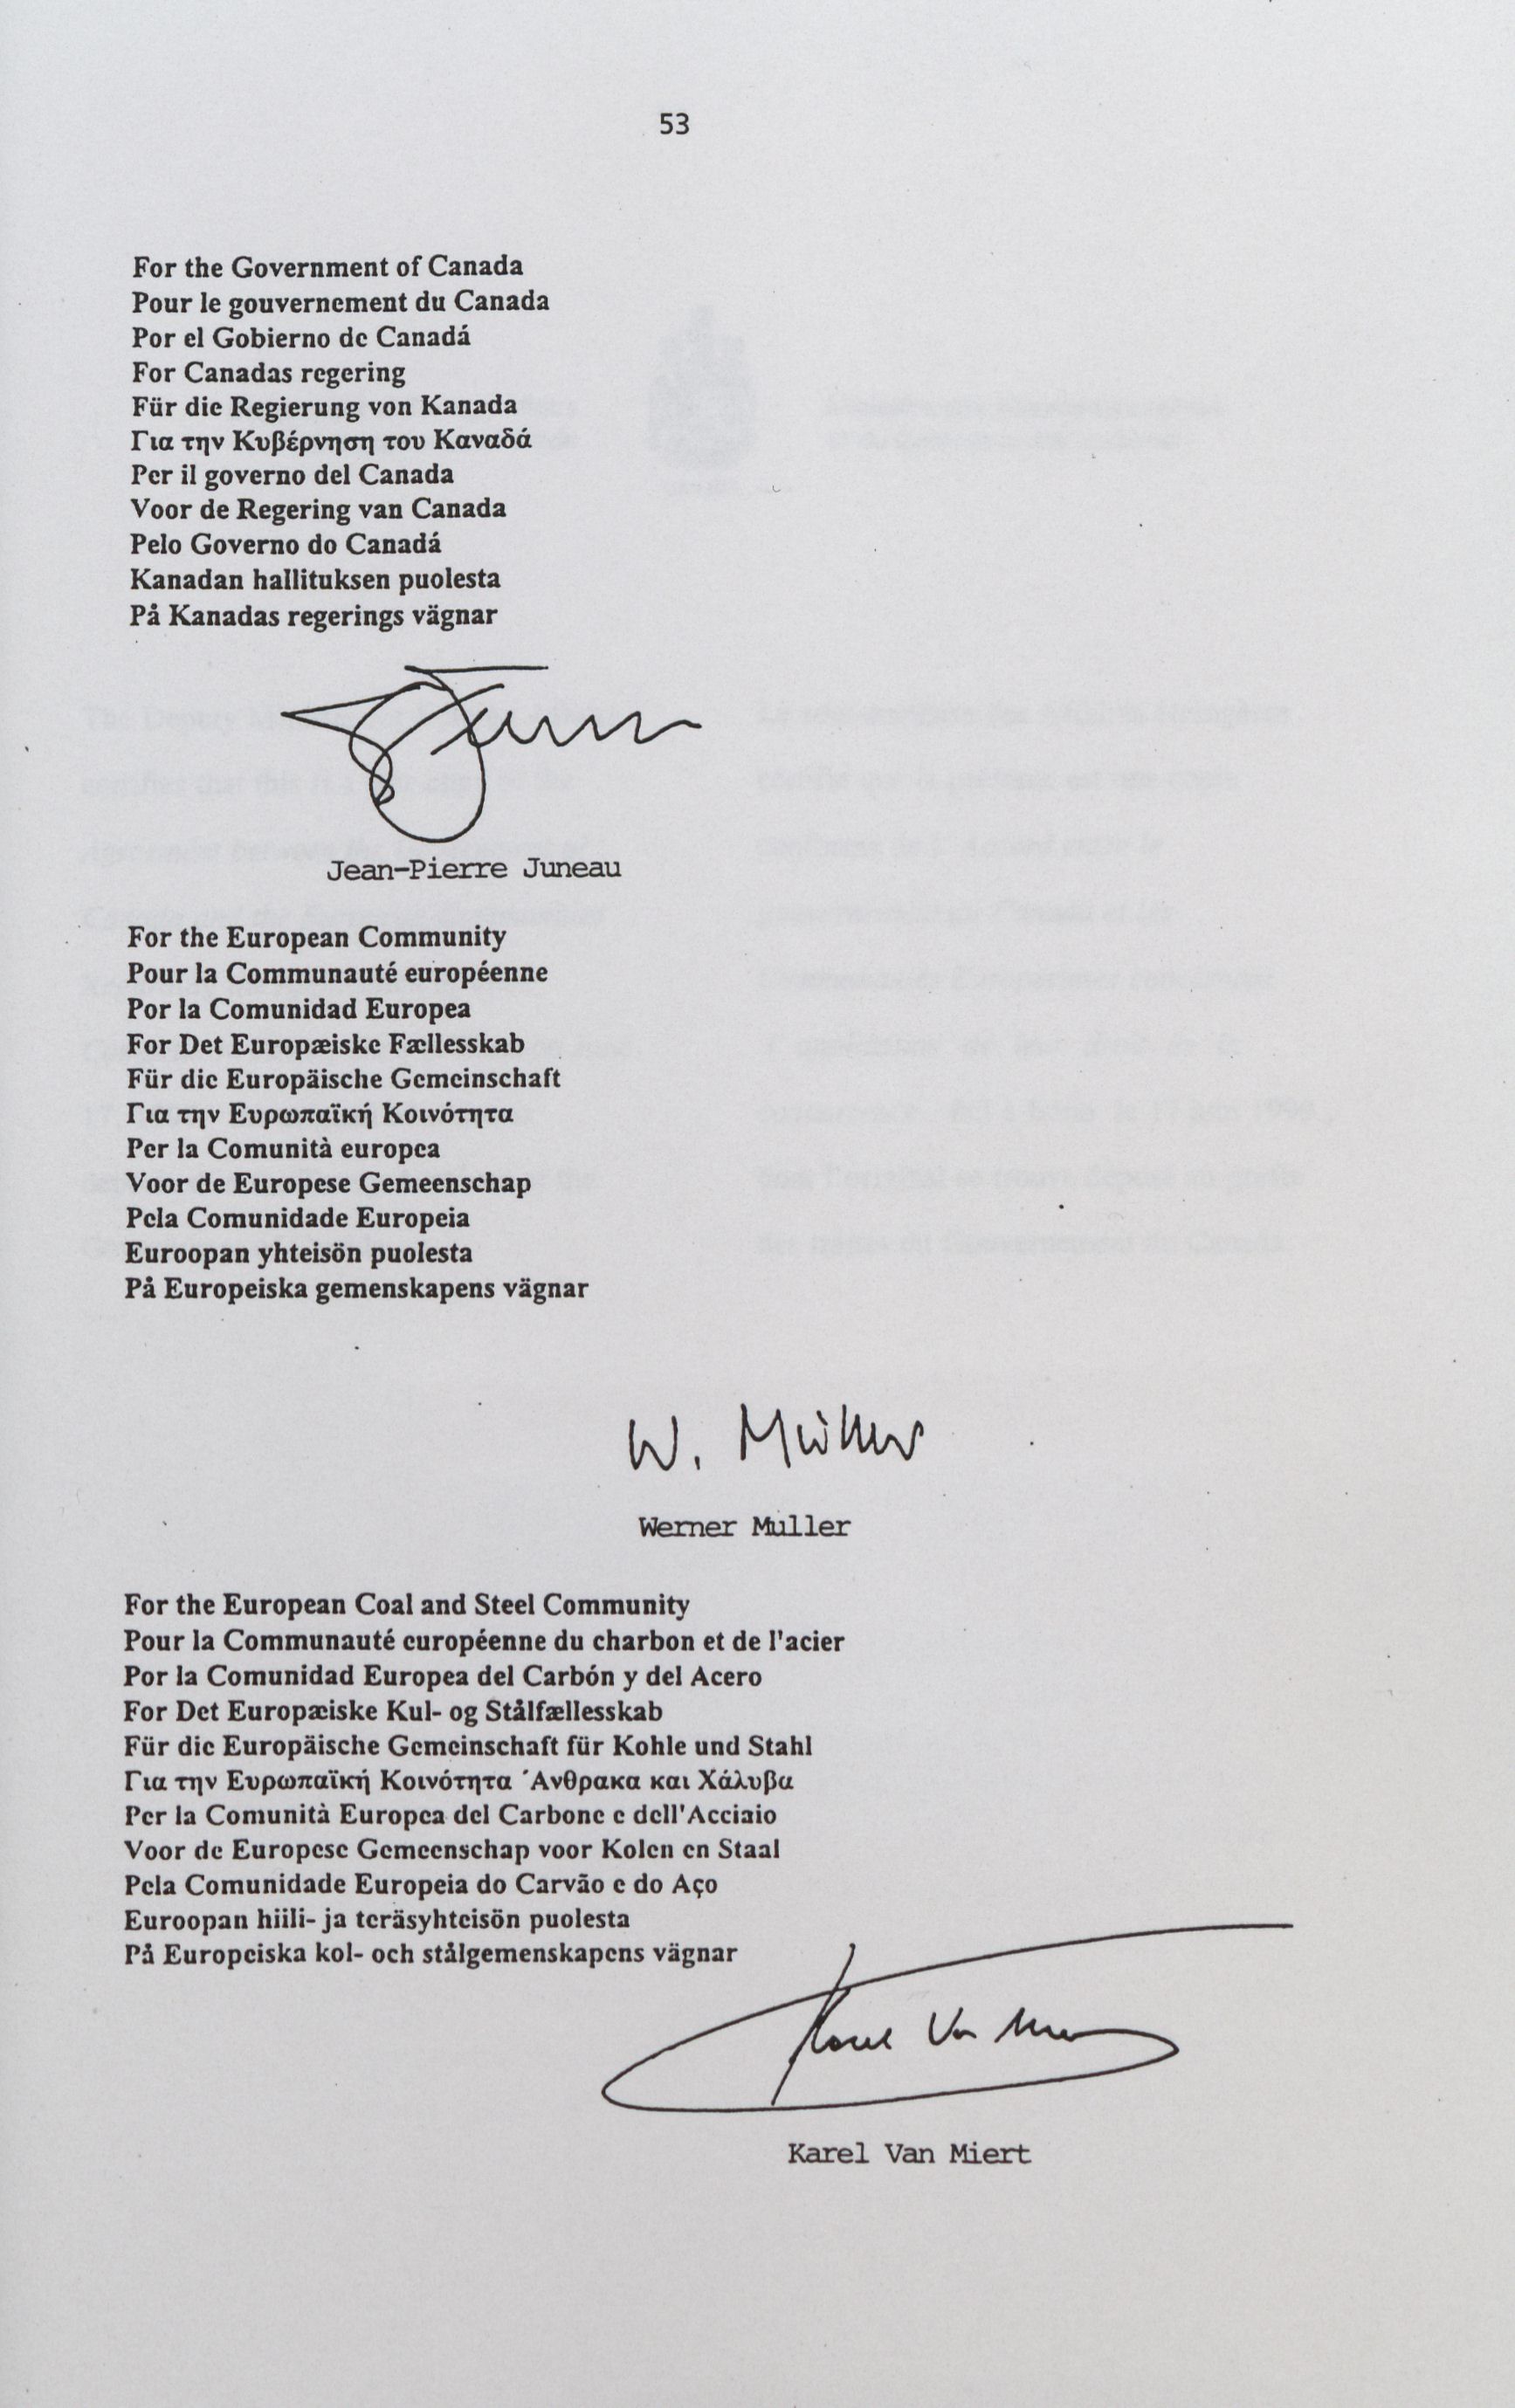 53
For the Government of Canada
Pour le gouvernement du Canada
Por el Gobierno de Canadá
For Canadas regering
Für die Regierung von Kanada
Για την Κυβέρνηση του Καναδά
Per il governo del Canada
Voor de Regering van Canada
Pelo Governo do Canadá
Kanadan hallituksen puolesta
På Kanadas regerings vägnar
Jean-Pierre Juneau
For the European Community
Pour la Communauté européenne
Por la Comunidad Europea
For Det Europæiske Fællesskab
Für die Europäische Gemeinschaft
Για την Ευρωπαϊκή Κοινότητα
Per la Comunità europea
Voor de Europese Gemeenschap
Pela Comunidade Europeia
Euroopan yhteisön puolesta
På Europeiska gemenskapens vägnar
W. Müller
Werner Muller
For the European Coal and Steel Community
Pour la Communauté européenne du charbon et de l'acier
Por la Comunidad Europea del Carbón y del Acero
For Det Europæiske Kul- og Stålfællesskab
Für die Europäische Gemeinschaft für Kohle und Stahl
Για την Ευρωπαϊκή Κοινότητα ΄Ανθρακα και Χάλυβα
Per la Comunità Europea del Carbone e dell'Acciaio
Voor de Europese Gemeenschap voor Kolen en Staal
Pela Comunidade Europeia do Carvão e do Aço
Euroopan hiili- ja teräsyhteisön puolesta
På Europeiska kol- och stålgemenskapens vägnar
Karel Van Miert
Karel Van Miert